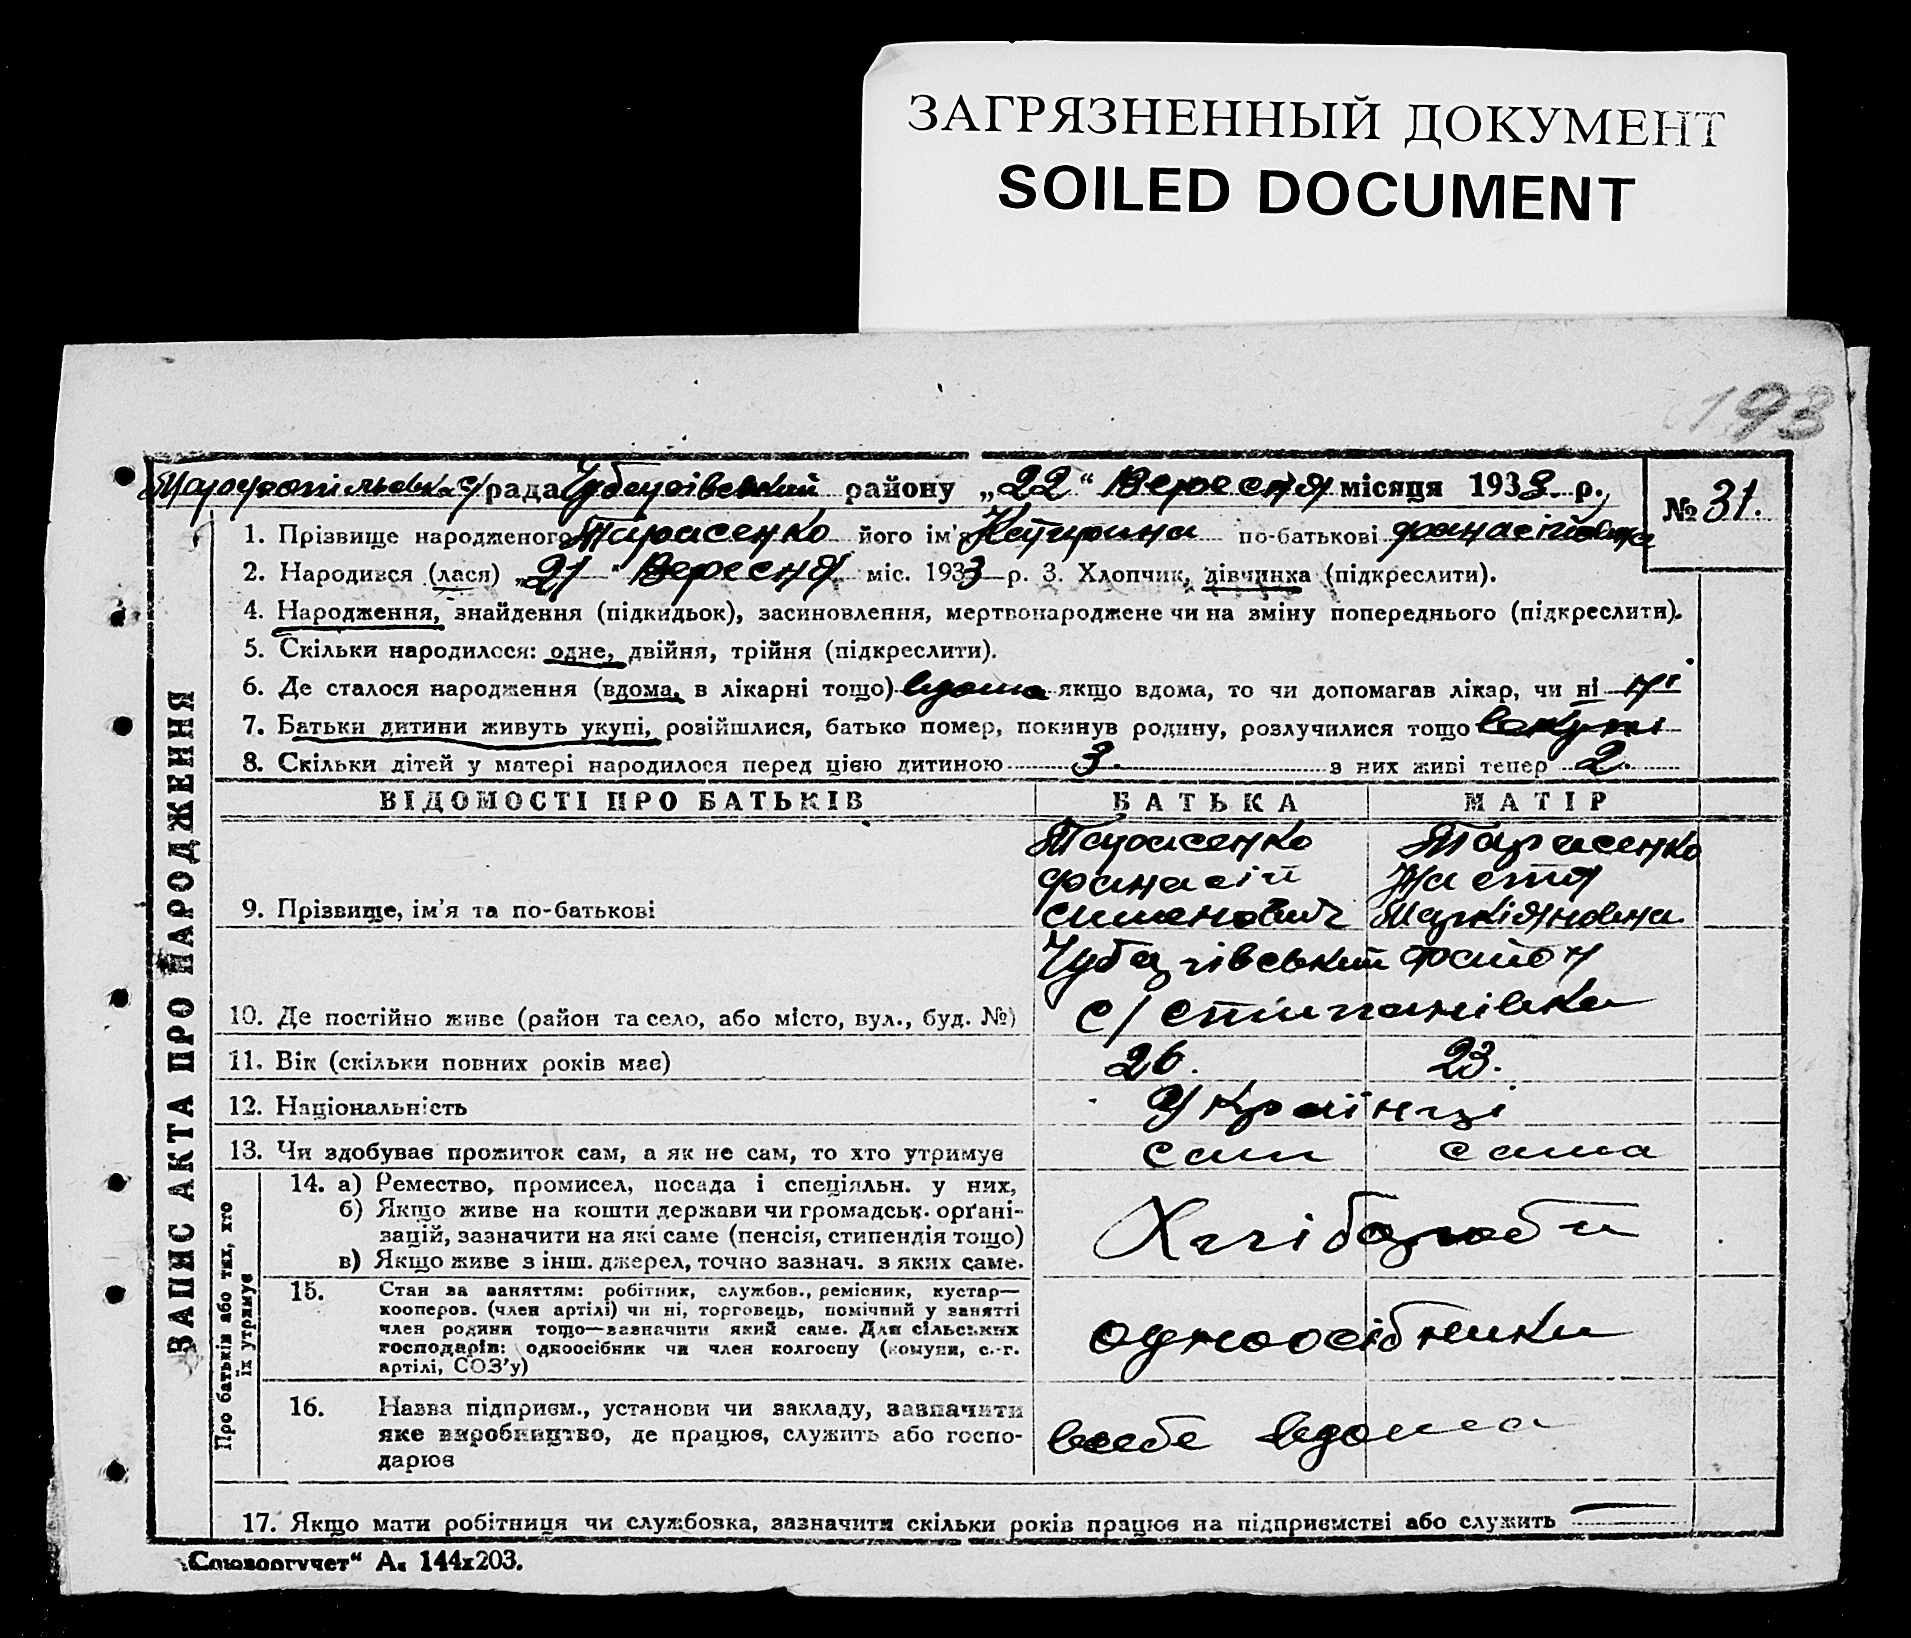 ЗАГРЯЗНЕННЫЙ ДОКУМЕНТ
SOILED DOCUMENT
193
рада Чубарівський району „22“ Вересня місяця 1933 р.
№ 31.
1. Прізвище народженого Тарасенко його ім'я Катирина по-батькові
2. Народився (лася) „21“ Вересня міс. 1933 р. 3. Хлопчик, дівчинка (підкреслити).
4. Народження, знайдення (підкидьок), засиновлення, мертвонароджене чи на зміну попереднього (підкреслити).
5. Скільки народилося: одне, двійня, трійня (підкреслити).
6. Де сталося народження (вдома, в лікарні тощо) вдома якщо вдома, то чи допомагав лікар, чи ні ні
7. Батьки дитини живуть укупі, розійшлися, батько помер, покинув родину, розлучилися тощо вкупі
8. Скільки дітей у матері народилося перед цією дитиною 3. з них живі тепер 2.
ЗАПИС АКТА ПРО НАРОДЖЕННЯ
ВІДОМОСТІ ПРО БАТЬКІВ БАТЬКА МАТІР
Тарасенко Тарасенко
Фанасій Настя
9. Прізвище, ім'я та по-батькові Маркіяновна
Чубарівський район
10. Де постійно живе (район та село, або місто, вул., буд. №) с/Стипанівка
11. Вік (скільки повних років має) 26. 23.
12. Національність Українці
13. Чи здобуває прожиток сам, а як не сам, то хто утримує сам сама
Про батьків або тих, хто їх утримує
14. а) Ремество, промисел, посада і спеціяльн. у них,
б) Якщо живе на кошти держави чи громадськ. орґані-
зацій, зазначити на які саме (пенсія, стипендія тощо) Хлібороби
в) Якщо живе з інш. джерел, точно зазнач. з яких саме.
15. Стан за заняттям: робітник, службов., ремісник, кустар—
кооперов. (член артілі) чи ні, торговець, помічний у занятті
член родини тощо—зазначити який саме. Для сільських
господарів: одноосібник чи член колгоспу (комуни, с.-г. одноосібники
артілі, СОЗ'у)
16. Назва підприєм., установи чи закладу, зазначити
яке виробництво, де працює, служить або госпо- всебе вдома
дарює
17. Якщо мати робітниця чи службовка, зазначити скільки років працює на підприємстві або служить
„Союзоргучет“ А₄ 144х203.